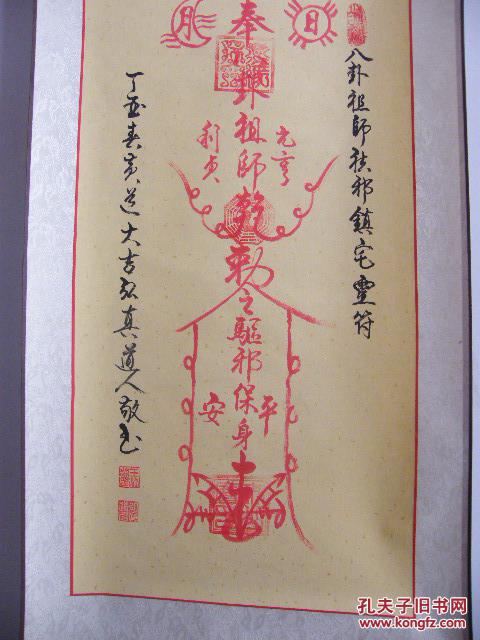 八卦祖師祛邪鎮宅靈符
日
月
奉
卦祖師
勅
之驅邪保身
元亨
利貞
平
安
丁亥春黄道大吉弘真道人敬书
孔夫子旧书网
www.kongfz.com